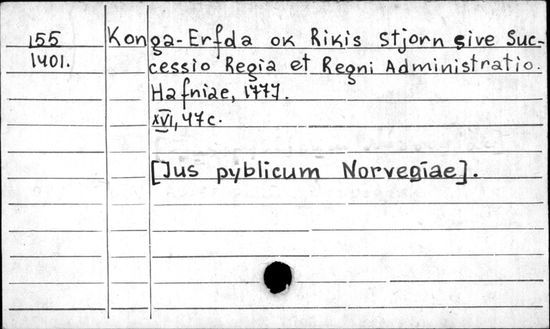 155
1401.
Konga-Erfda ok Rikis Stjorn sive Suc-
cessio Regia et Regni Administratio.
Hafniae, 1777.
XVI, 47c.
[Jus pyblicum Norvegiae].